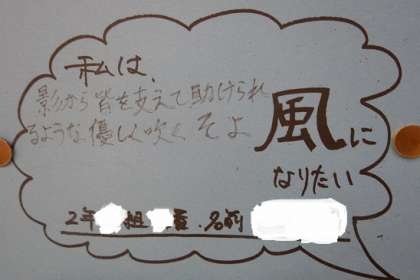 私は、
影から皆を支えて助けられ
るような優しく吹く、そよ
風に
なりたい
2年 組 番 名前